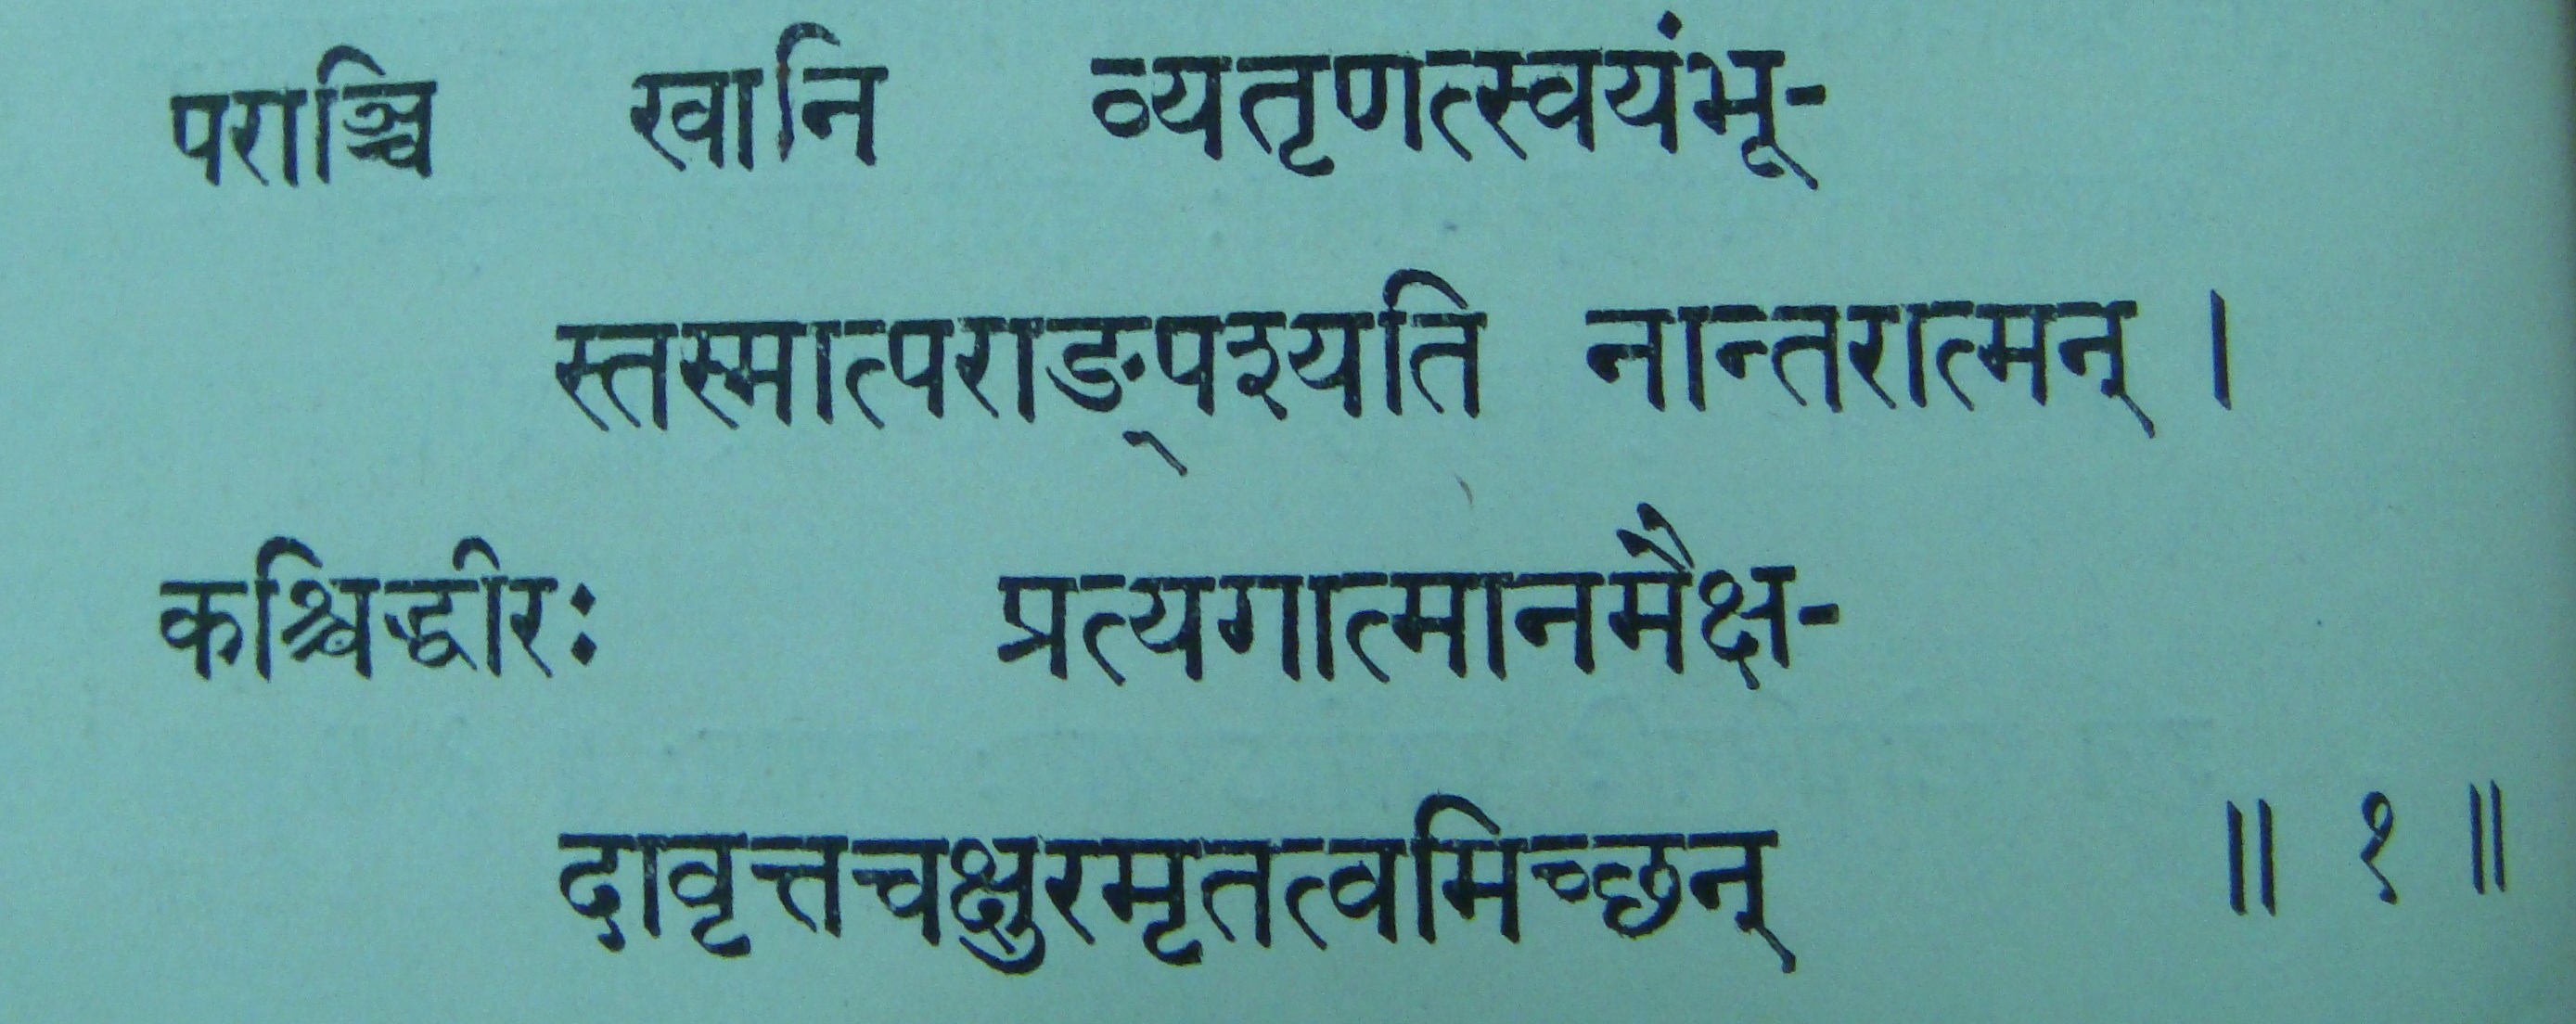 पराञ्चि खानि व्यतृणत्स्वयंभू-
स्तस्मात्पराङ्पश्यति नान्तरात्मन् ।
कश्चिद्धीरः प्रत्यगात्मानमैक्ष-
दावृत्तचक्षुरमृतत्वमिच्छन् ॥ १ ॥